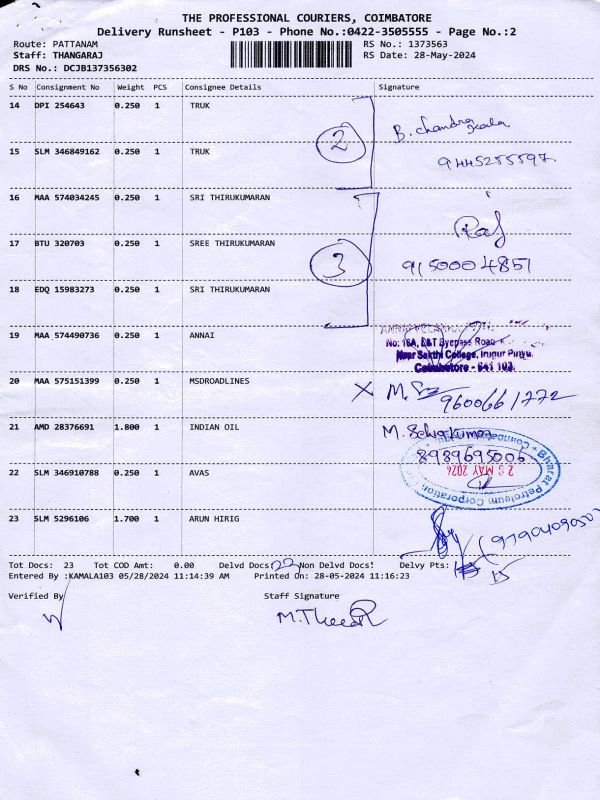 THE PROFESSIONAL COURIERS, COIMBATORE
Delivery Runsheet - P103 - Phone No.:0422-3505555 - Page No.:2
Route: PATTANAM RS No.: 1373563
Staff: THANGARAJ RS Date: 28-May-2024
DRS No.: DCJB137356302
S No Consignment No Weight PCS Consignee Details Signature
14 DPI 254643 0.250 1 TRUK
B. chandra kala
2
15 SLM 346849162 0.250 1 TRUK
9445255597.
16 MAA 574034245 0.250 1 SRI THIRUKUMARAN
Raj
17 BTU 320703 0.250 1 SREE THIRUKUMARAN
3
9150004851
18 EDQ 15983273 0.250 1 SRI THIRUKUMARAN
19 MAA 574490736 0.250 1 ANNAI
No: 16A, L&T Byepass Road
Near Sakthi College, Irugur Pirivu,
Coimbatore - 641 103.
20 MSA 575151399 0.250 1 MSDROADLINES
X M. 9600661772
21 AMD 28376691 1.800 1 INDIAN OIL
M. Selvakumar
8989695006
22 SLM 346910788 0.250 1 AVAS
Bharat Petroleum Corporation
28 MAY 2024
23 SLM 5296106 1.700 1 ARUN HIRIG
Tot Docs: 23 Tot COD Amt: 0.00 Delvd Docs: 22 Non Delvd Docs: Delvy Pts: 15
Entered By :KAMALA103 05/28/2024 11:14:39 AM Printed On: 28-05-2024 11:16:23
Verified By Staff Signature